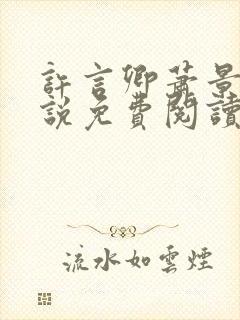 許言卿蕭景
說免費閱讀
流水如雲煙